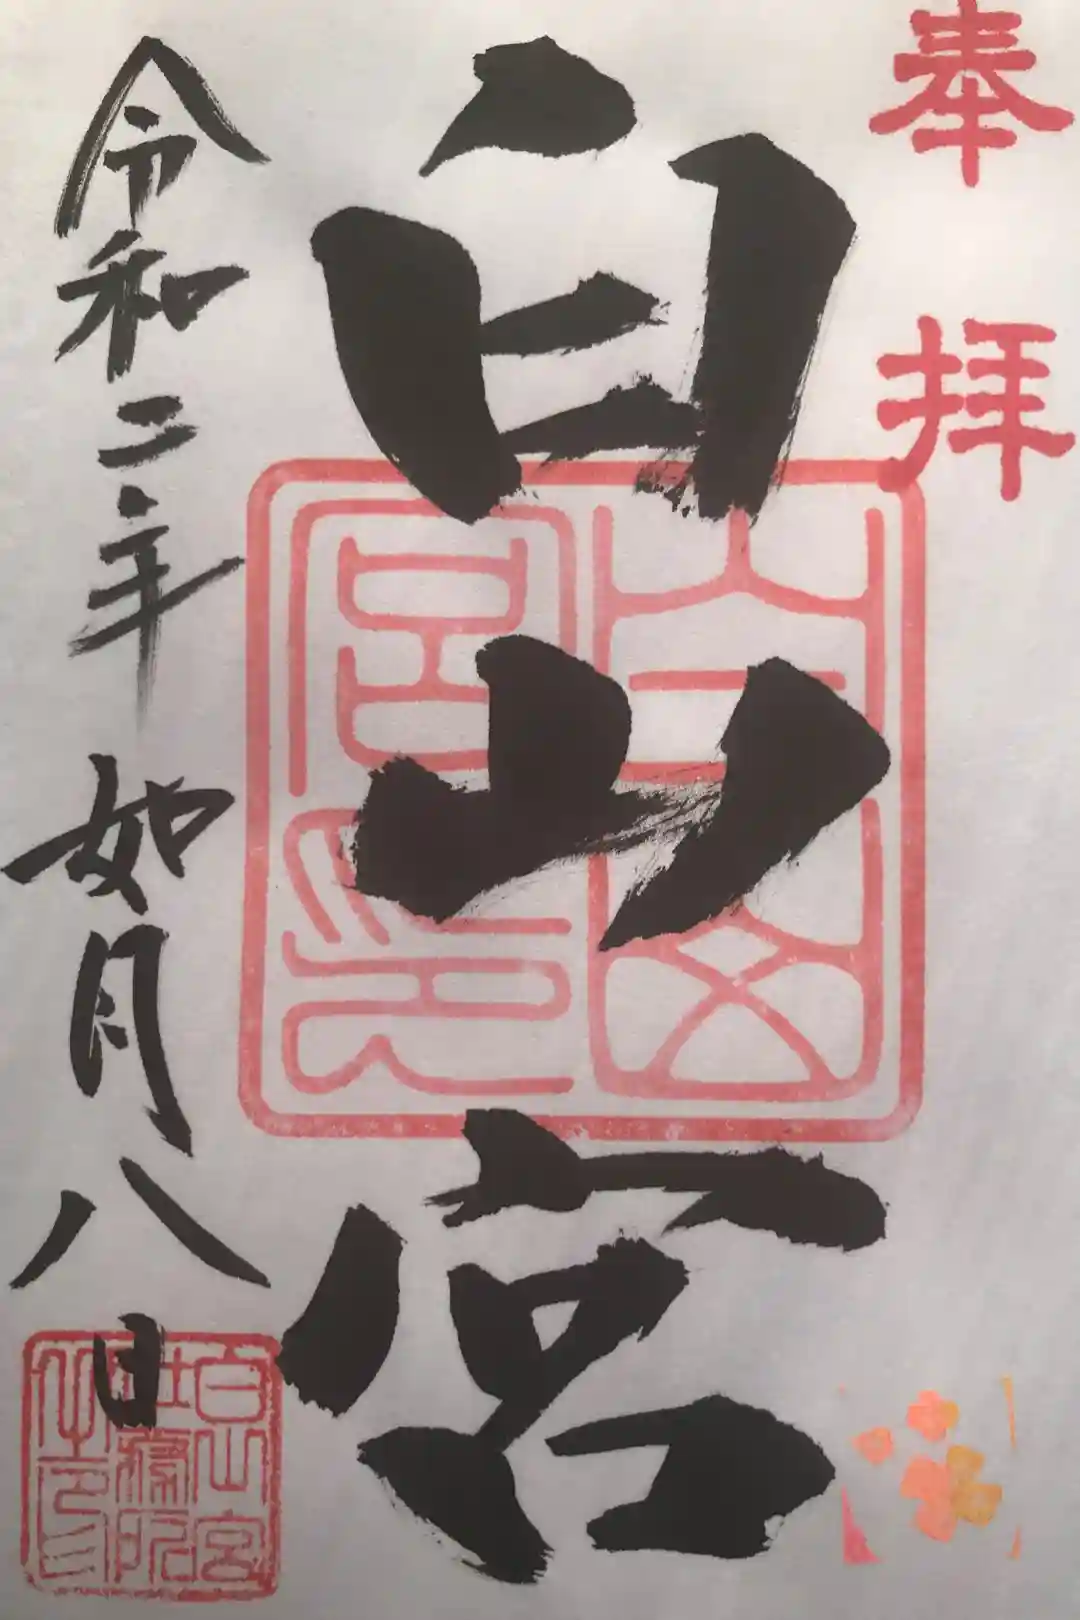 奉拝
白山宮
白山宮印
令和二年 如月八日
白山宮
社務所
之印